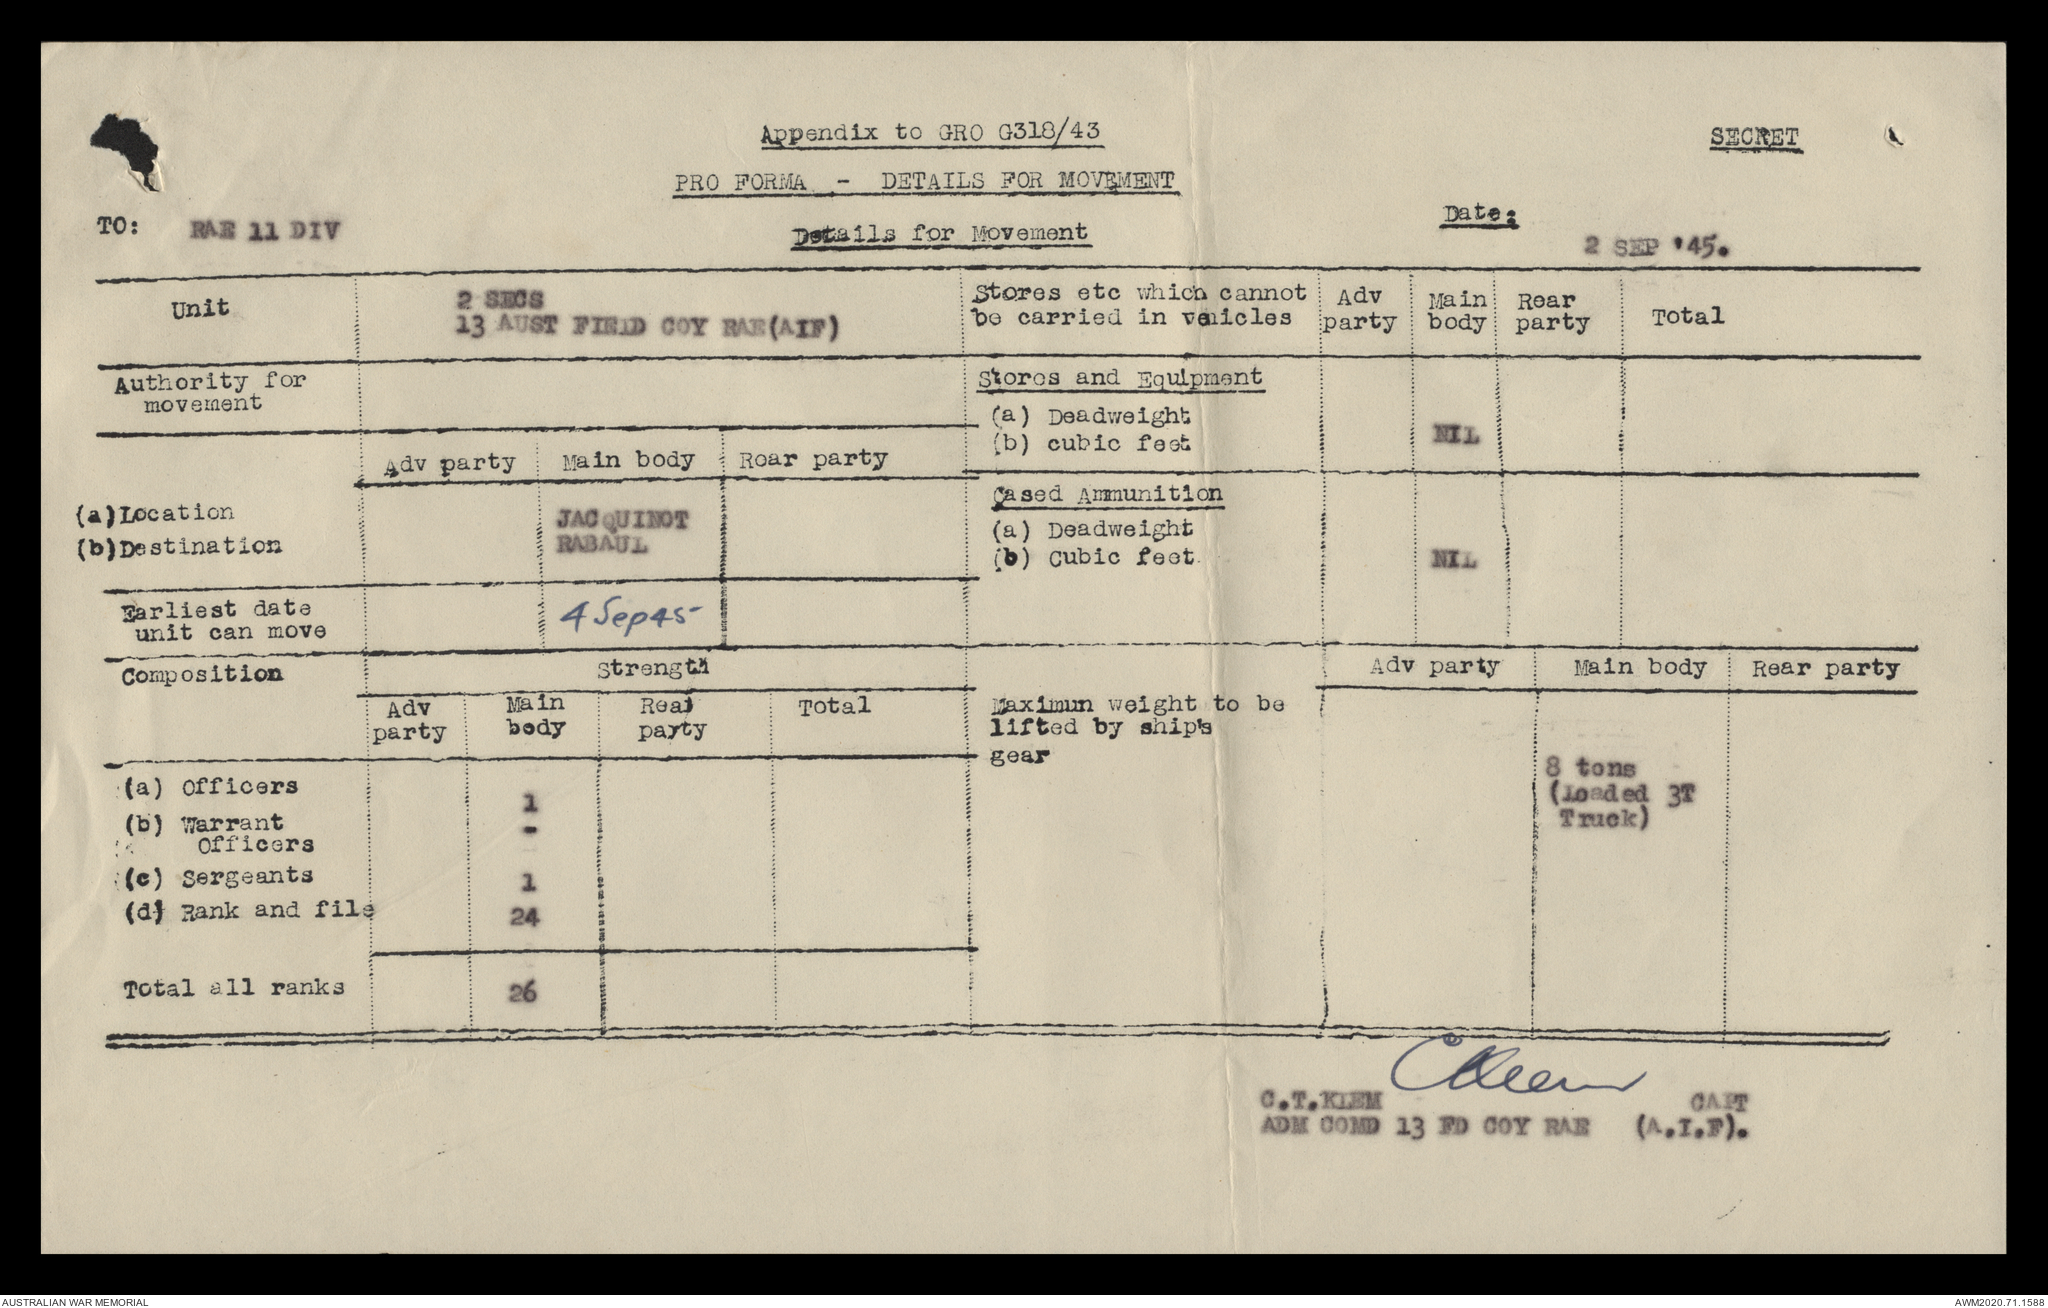 Appendix to GRO G318/43
SECRET
PRO FORMA - DETAILS FOR MOVEMENT
TO: RAE 11 DIV
Details for Movement
Date:
2 SEP '45.
Unit
2 SECS
13 AUST FIELD COY RAE(AIF)
Stores etc which cannot
be carried in vehicles
Adv
party
Main
body
Rear
party
Total
Authority for
movement
Stores and Equipment
(a) Deadweight
(b) cubic feet
NIL
Adv party Main body Rear party
(a)Location JACQUINOT
(b)Destination RABAUL
Cased Ammunition
(a) Deadweight
(b) Cubic feet
NIL
Earliest date
unit can move
4 Sep 45
Composition
Strength
Adv
party
Main
body
Rear
party
Total
Adv party Main body Rear party
Maximun weight to be
lifted by ship's
gear
8 tons
(Loaded 3T
Truck)
(a) Officers 1
(b) Warrant
Officers -
(c) Sergeants 1
(d) Rank and file 24
Total all ranks 26
C.T.KLEM CAPT
ADM COMD 13 FD COY RAE (A.I.F).
AUSTRALIAN WAR MEMORIAL
AWM2020.71.1588